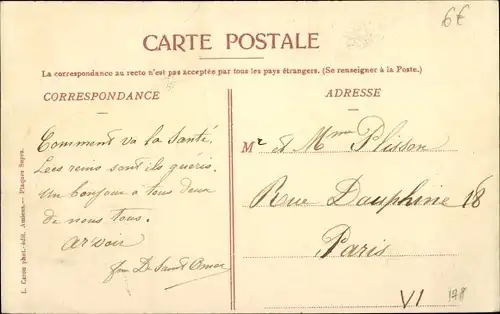 6€
CARTE POSTALE
La correspondance au recto n'est pas acceptée par tous les pays étrangers. (Se renseigner à la Poste.)
CORRESPONDANCE
ADRESSE
Comment va la santé.
Les reins sont ils guéris.
Un bonjour à tous deux
de nous tous.
arvoir
De Saint Omer
Mr et Mme Plisson
Rue Dauphine 18
Paris
VI
L. Caron phot.-édit. Amiens. — Plaques Supra.